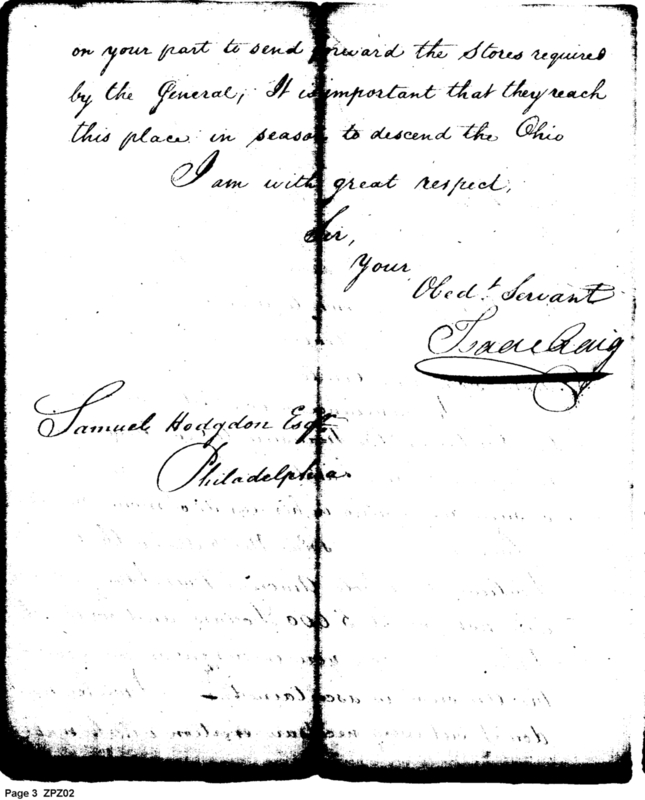 on your part to send forward the Stores required
by the General, It is important that they reach
this place in season to descend the Ohio
I am with great respect,
Sir,
Your
Obed.t Servant
Isaac Craig
Samuel Hodgdon Esqr.
Philadelphia.
Page 3 ZPZ02